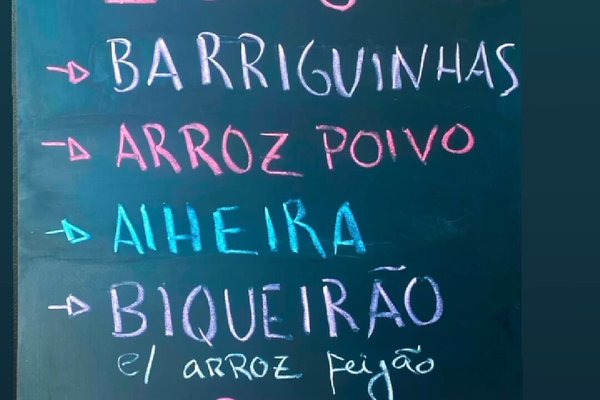 BARRIGUINHAS
ARROZ POIVO
AIHEIRA
BIQUEIRÃO
c/ ARROZ feijão